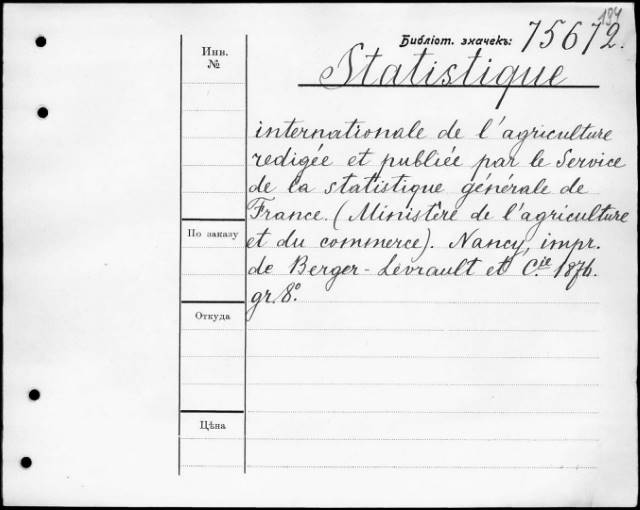 194
Библіот. значекъ: 75672.
Statistique
Инв.
№
internationale de l'agriculture
redigée et publiée par le Service
de la statistique générale de
France. (Ministère de l'agriculture
По заказу
et du commerce). Nancy, impr.
de Berger-Levrault et C.ie 1876.
gr. 8°.
Откуда
Цѣна